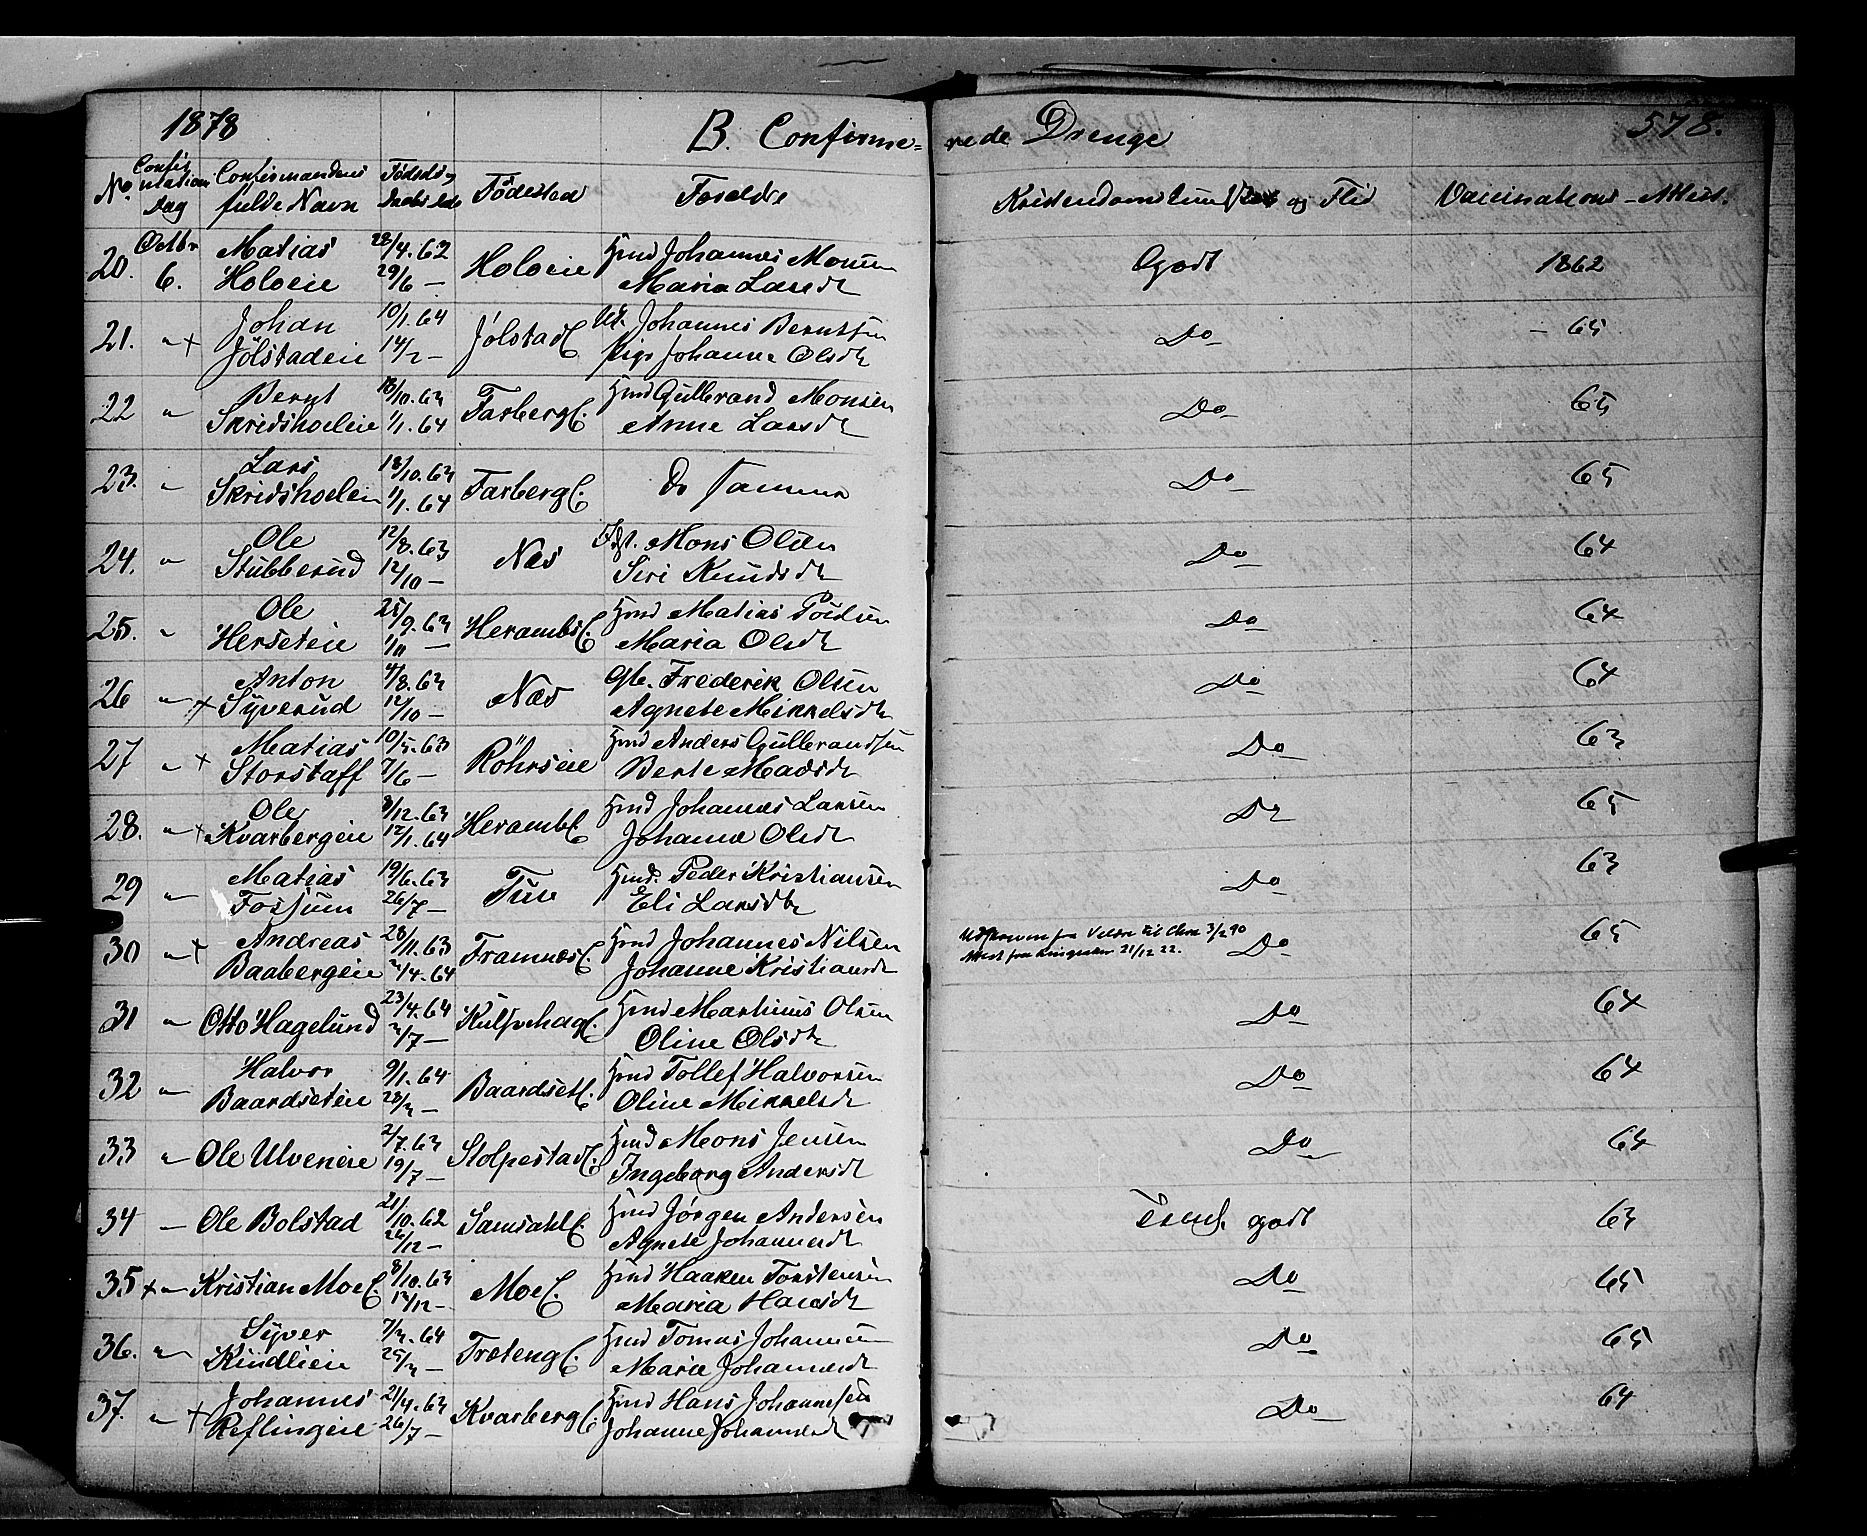 1878 B. Confirme= rede Drenge 578.
No. Confirmations Dag Confirmandens fulde Navn Fødsels og Daabs Dato Födested Foreldre Kristendomskundskab og Flid Vaccinations-Attest.
20. Octbr 6. Matias Holoeie 28/4.62 29/6 — Holoeie Hmd Johannes Monsen Maria Larsdtr Godt 1862
21. " + Johan Jölstadeie 10/1.64 14/2 — Jölstad E. Johannes Berntsen Pige Johanne Olsdtr Do — 65
22 " Bernt Skridshoeleie 18/10.63 1/1.64 Farberg E. Hmd Gulbrand Monsen Anne Larsdtr Do 65
23. " Lars Skridshoeleie 18/10.63 1/1.64 Farberg E. De samme Do 65
24. " Ole Stubberud 12/8.63 12/10 — Næs Mons Olsen Siri Knudsdtr Do 64
25. " Ole Herseteie 25/9.63 1/11 — Herambs E. Hmd Matias Poulsen Maria Olsdtr Do 64
26 " + Anton Syverud 4/8.63 12/10 — Næs Gb. Frederik Olsen Agnete Mikkelsdtr Do 64
27 " + Matias Storstaff 10/5.63 7/6 — Röhrseie Hmd Anders Gulbrandsen Berte Madsdtr Do 63
28. " + Ole Kvarbergeie 8/12.63 12/1.64 Heramb E. Hmd Johannes Larsen Johanne Olsdtr Do 65
29 " Matias Fossum 19/6.63 26/7 — Tuu Hmd. Peder Kristiansen Eli Larsdtr Do 63
30 " + Andreas Baabergeie 28/11.63 /4.64 Framnæs E. Hmd Johannes Nilsen Johanne Kristiansdtr Udskreven fra Veldre til Chra 3/2 90 Attest fra Ringsaker 21/12 22. Do 65
31 " Otto Hagelund 23/4.64 3/7 — Kulpehag E. Hmd Martinus Olsen Oline Olsdtr Do 64
32 " Halvor Baardseteie 9/1.64 28/3 — Baardset E. Hmd Tollef Halvorsen Oline Mikkelsdtr Do 64
33 " Ole Ulveneie 2/7.63 19/7 — Stolpestad E. Hmd Mons Jensen Ingeborg Andersdtr Do 64
34 — Ole Bolstad 21/10.62 26/12 — Samsahl E. Hmd Jörgen Andersen Agnete Johannesdtr Temlg. godt 63
35 + " Kristian Moe E. 8/10.63 13/12 — Moe E. Hmd Haaken Torstensen Maria Hansdtr Do 65
36. " Syver Kindlieie 7/3.64 25/3 — Freteng E. Hmd Tomas Johannesen Marie Johannesdtr Do 65
37. " + Johannes Reflingeie 21/4.63 26/7 — Kvarberg E. Hmd Hans Johannesen Johanne Johannesdtr Do 64